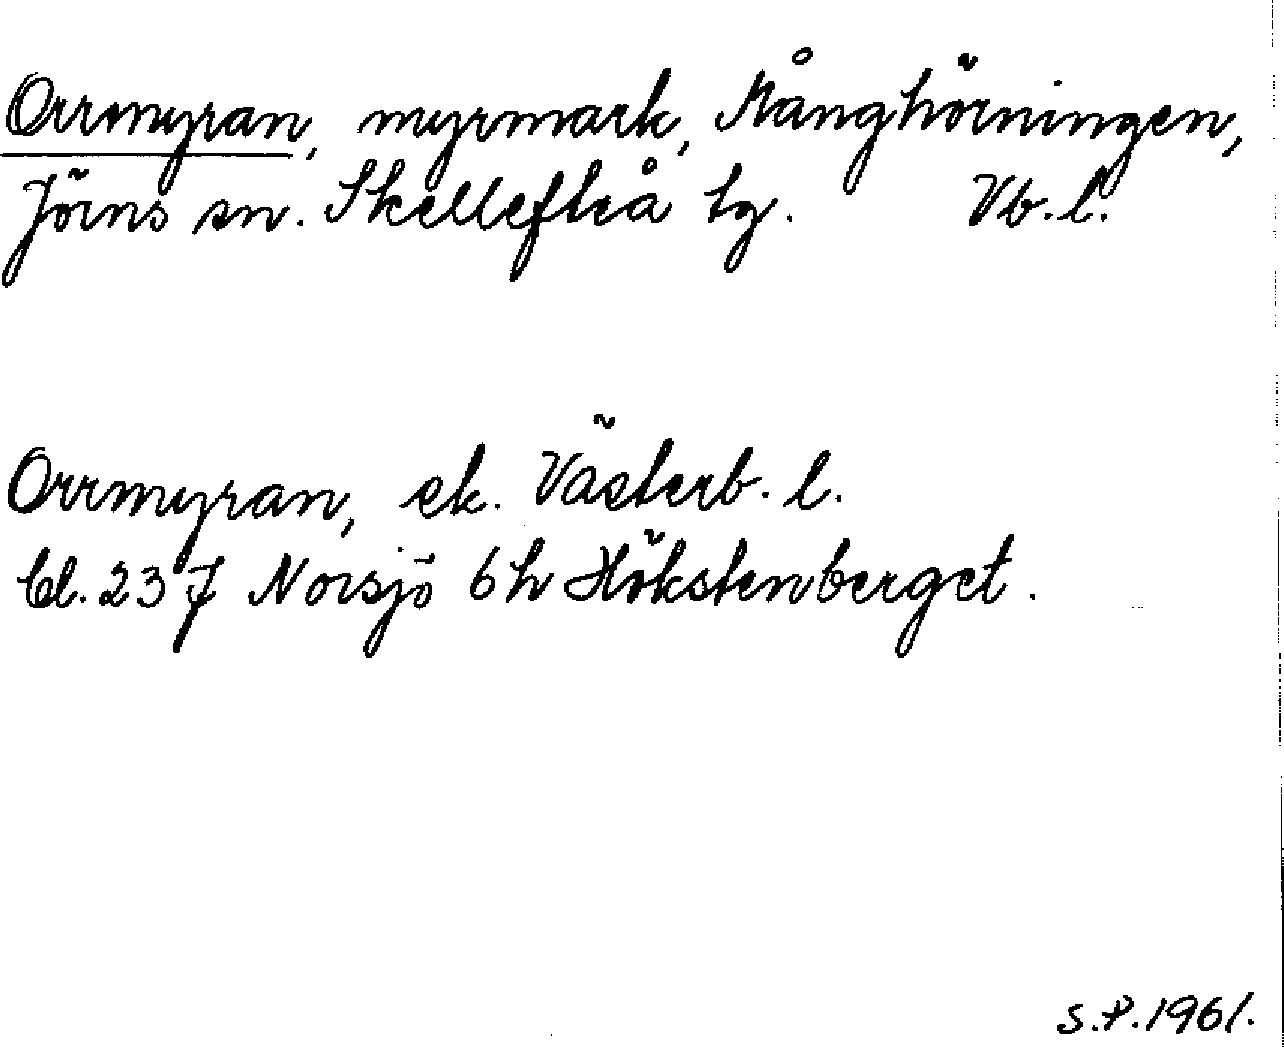 Orrmyran, myrmark, Månghörningen,
Jörns sn. Skellefteå tg. Vb. l.
Orrmyran, ek. Västerb. l.
bl. 23 J Norsjö 6h Hökstenberget.
S.P. 1961.